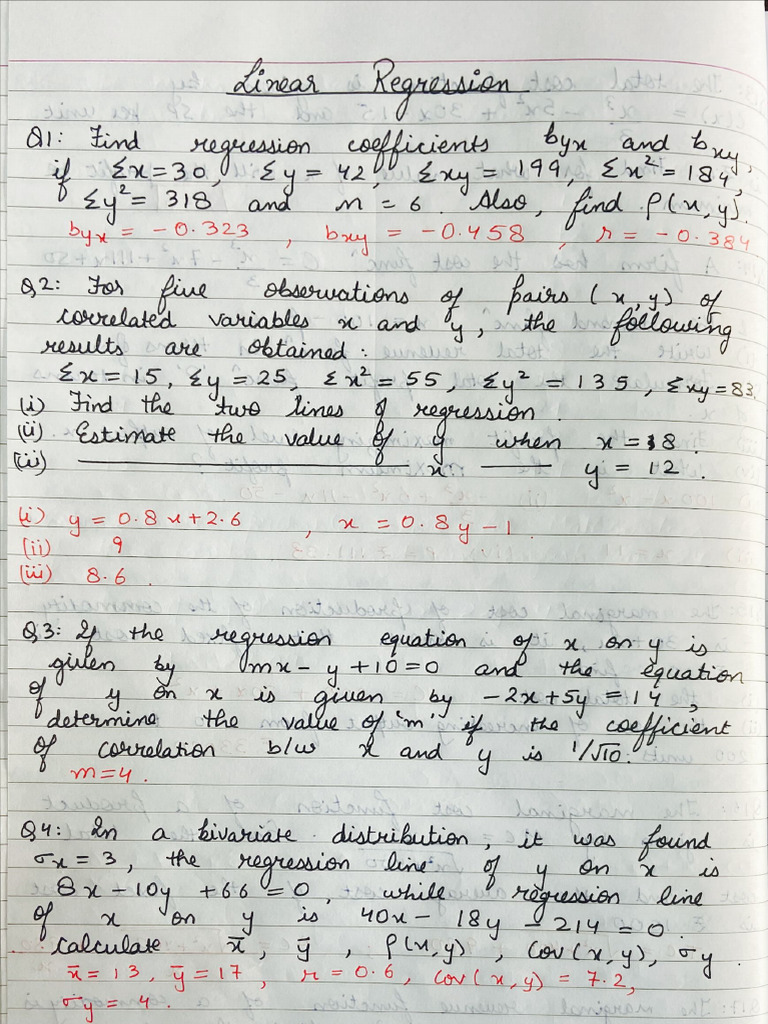 Linear Regression
Q1: Find regression coefficients byx and bxy,
if Σx=30, Σy = 42, Σxy = 199, Σx² = 184,
Σy² = 318 and n = 6. Also, find ρ(x,y).
byx = -0.323 , bxy = -0.458 , r = -0.384
Q2: For five observations of pairs (x,y) of
correlated variables x and y, the following
results are obtained:
Σx = 15, Σy = 25, Σx² = 55, Σy² = 135, Σxy = 83.
(i) Find the two lines of regression
(ii) Estimate the value of y when x = 8.
(ii) ——— x — y = 12.
(i) y = 0.8x+2.6 , x = 0.8y-1.
(ii) 9
(iii) 8.6.
Q3: If the regression equation of x on y is
given by mx - y + 10 = 0 and the equation
of y on x is given by -2x+5y = 14,
determine the value of 'm' if the coefficient
of correlation b/w x and y is 1/√10.
m=4.
Q4: In a bivariate distribution, it was found
σx = 3, the regression line of y on x is
8x - 10y + 66 = 0, while regression line
of x on y is 40x - 18y - 214 = 0.
calculate x̄, ȳ, ρ(x,y), cov(x,y), σy.
x̄ = 13, ȳ = 17, r = 0.6, cov(x,y) = 7.2,
σy = 4.